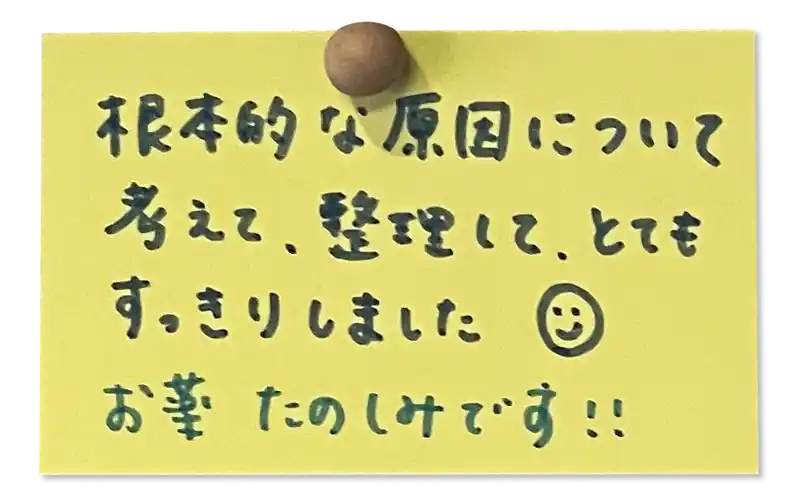 根本的な原因について
考えて、整理して、とても
すっきりしました
お薬 たのしみです!!